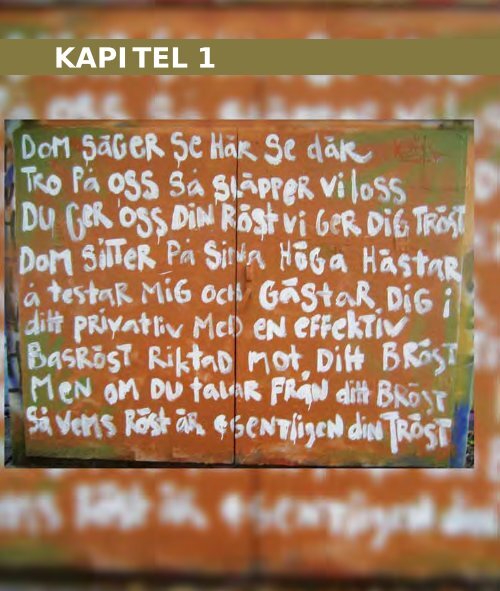 KAPITEL 1
DOM SÄGER SE HÄR SE däR
TRO På OSS Så SLäPPER Vi loss
DU GER OSS DIN RöST Vi GER DIG TRöST
DOM SiTTER På SiNA HöGa HäSTAR
å testaR MiG OCH GäSTaR DiG i
ditt privatliv MeD eN effeKTiV
BASRöST RiKTAD mot DiTT BRöST
MeN om DU talar FRåN ditt BRöST
Så VeMs RöST äR eGeNTligeN din TRöST